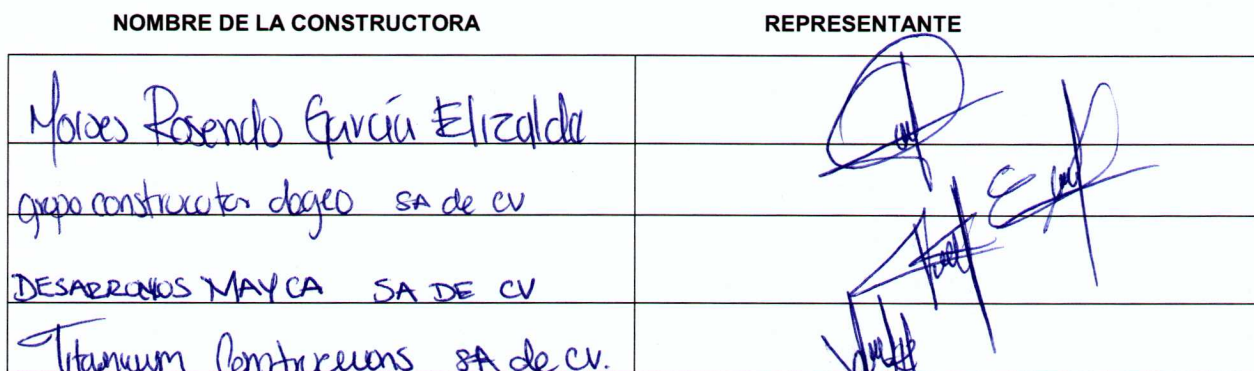 NOMBRE DE LA CONSTRUCTORA REPRESENTANTE
Moises Rosendo García Elizalda
grupo constructor dageo SA de CV
DESARROLLOS MAYCA SA DE CV
Titanium Construcuons SA de CV.